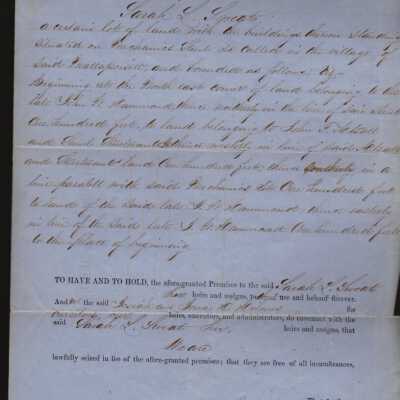 Sarah L. Sweat
a certain lot of land with the buildings thereon standing
situated on Mechanics Street so called in the village of
said Mattapoisett, and bounded as follows viz—
Beginning at the North east corner of land belonging to the
late Hammond thence northerly in the line of said Street
One hundred feet, to land belonging to John T. Atsatt
and thence westerly in line of said Atsatt
and land One hundred feet, thence southerly in a
line parallel with said Mechanics St. One hundred feet
to land of the said late Hammond, thence easterly
in line of the said late Hammond One hundred feet
to the place of beginning
TO HAVE AND TO HOLD, the afore-granted Premises to the said Sarah L. Sweat
her heirs and assigns, to her use and behoof forever.
And we the said Josiah and Holmes for
ourselves, our heirs, executors, and administrators, do covenant with the
said Sarah L. Sweat her heirs and assigns, that
we are
lawfully seized in fee of the afore-granted premises; that they are free of all incumbrances,